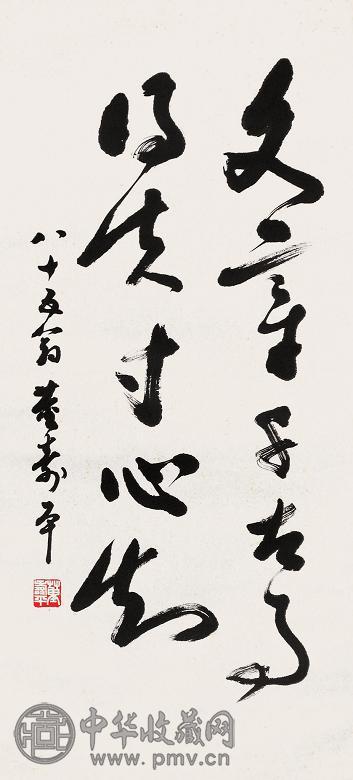 文章千古事
得失寸心知
八十五翁董壽平
中华收藏网
www.pmv.cn